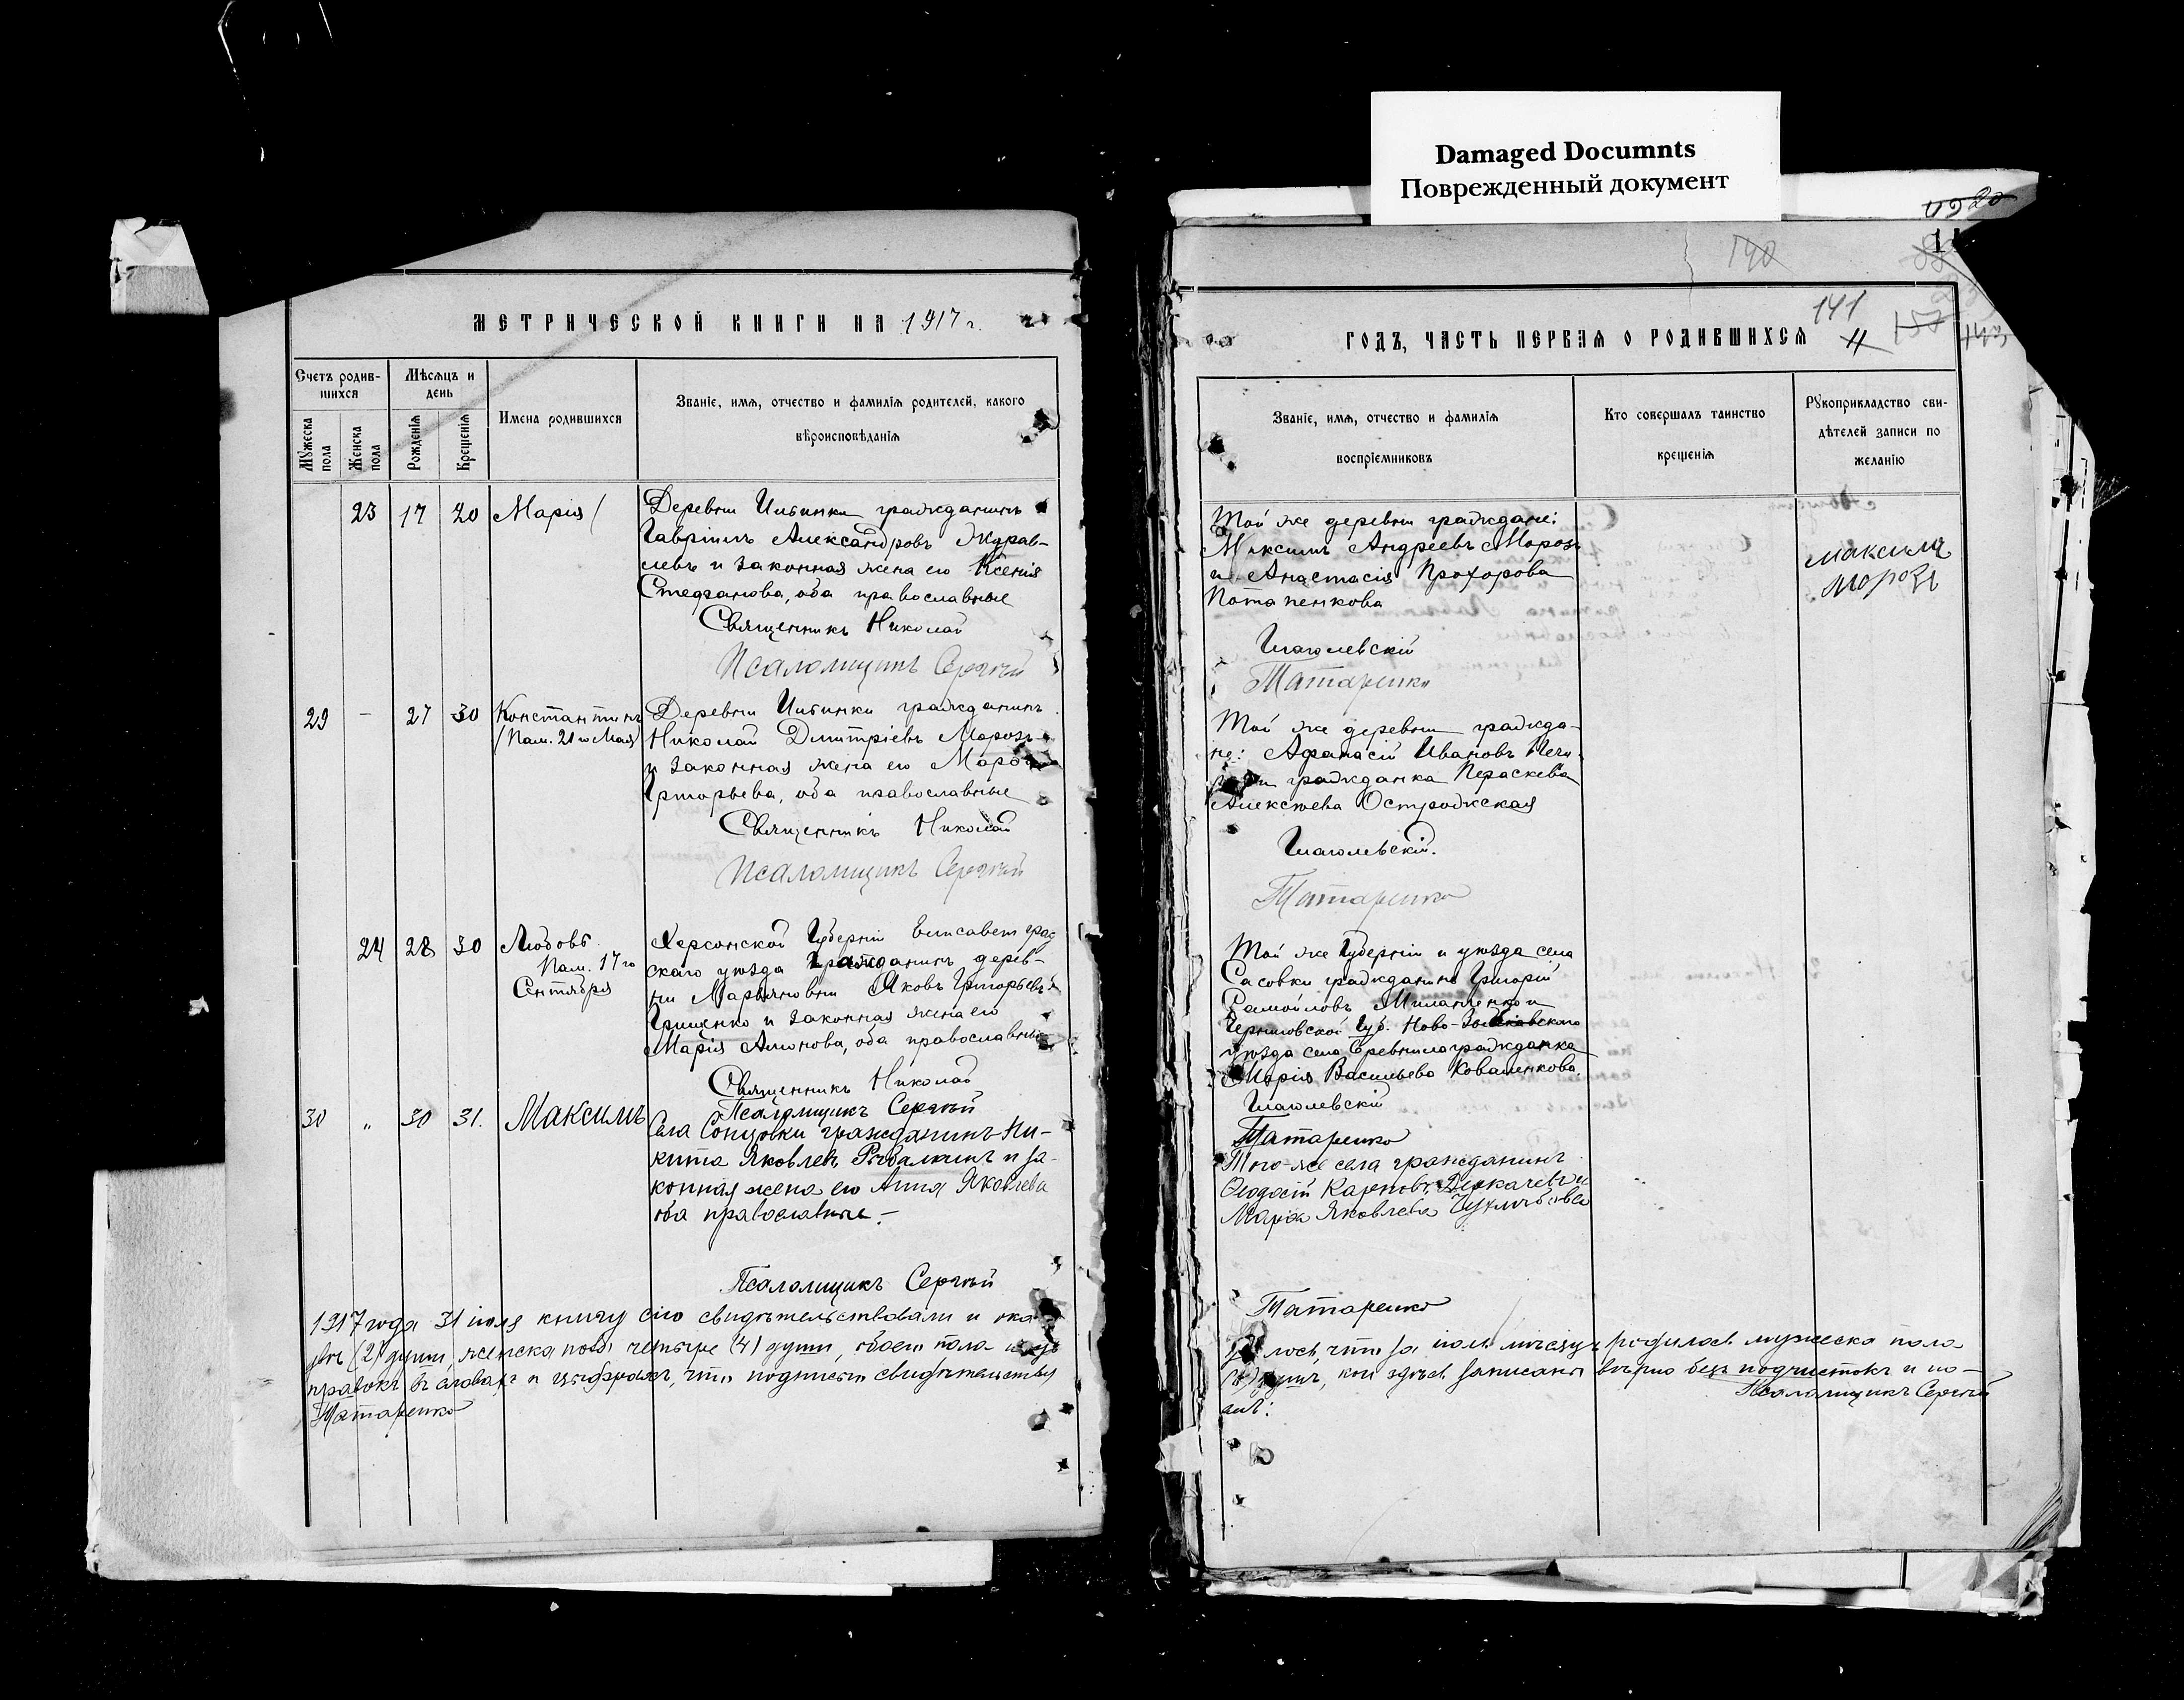 Damaged Documnts
Поврежденный документ
МЕТРИЧЕСКОЙ КНИГИ НА 1917 г.
Счетъ родив-
шихся
Мѣсяцъ и
день
Имена родившихся
Званіе, имя, отчество и фамилія родителей, какого
вѣроисповѣданія
Мужеска
пола
Женска
пола
Рожденія
Крещенія
23 17 20 Марія
Деревни Ильинки гражданинъ
Гавріилъ Александровъ Журав-
левъ и законная жена его Ксенія
Стефанова, оба православные
Священникъ Николай
Псаломщикъ Сергѣй
29 – 27 30 Константинъ
(Пам. 21го Мая)
Деревни Ильинки гражданинъ
Николай Димитріевъ Морозъ
и законная жена его
Григорьева, оба православные
Священникъ Николай
Псаломщикъ Сергѣй
24 28 30 Любовь
Пам. 17го
Сентября
Херсонской Губерніи Елисаветград
скаго уѣзда гражданинъ дерев-
ни Марьяновки Яковъ Григорьевъ
Грищенко и законная жена его
Марія, оба православные
Священникъ Николай
Псаломщикъ Сергѣй
30 „ 30 31. Максимъ
Села Сонцовки гражданинъ Ни-
кита Яковлевъ Рыбалкинъ и за-
конная жена его Анна Яковлева
оба православные.–
Псаломщикъ Сергѣй
1917 года 31 іюля книгу сію свидѣтельствовали и ока
двѣ (2) души, женска пола четыре (4) души, обоего пола
правокъ въ словахъ и цифрахъ, что подписью свидѣтельству
Татаренко
140
141
11
ГОДЪ, ЧАСТЬ ПЕРВАЯ О РОДИВШИХСЯ
Званіе, имя, отчество и фамилія
воспріемниковъ
Кто совершалъ таинство
крещенія
Рукоприкладство сви-
дѣтелей записи по
желанію
Той же деревни граждане:
Максимъ Андреевъ Морозъ
и Анастасія Прохорова
Потапенкова
Максимъ
Морозъ
Глаголевскій
Татаренко
Той же деревни гражда-
не: Афанасій Ивановъ
гражданка Параскева
Алексѣева Острожская
Глаголевскій.
Татаренко
Той же Губерніи и уѣзда села
Сасовки гражданинъ Григорій
Самойловъ и
Черниговской Губ. Ново-Зыбковского
уѣзда села гражданка
Марія Васильева Коваленкова.
Глаголевскій
Татаренко
Того-же села гражданинъ
Ѳеодосій Карповъ Деркачевъ и
Марія Яковлева
Татаренко
лось, что за іюль мѣсяцъ родилось мужеска пола
душъ, кои здѣсь записаны вѣрно безъ подчистокъ и по–
Псаломщикъ Сергѣй
емъ: